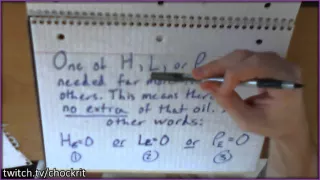 One of H, L, or P
needed far more
others. This means ther
no extra of that oil.
other words:
HE=0 or LE=0 or PE=0
① ② ③
twitch.tv/chockrit